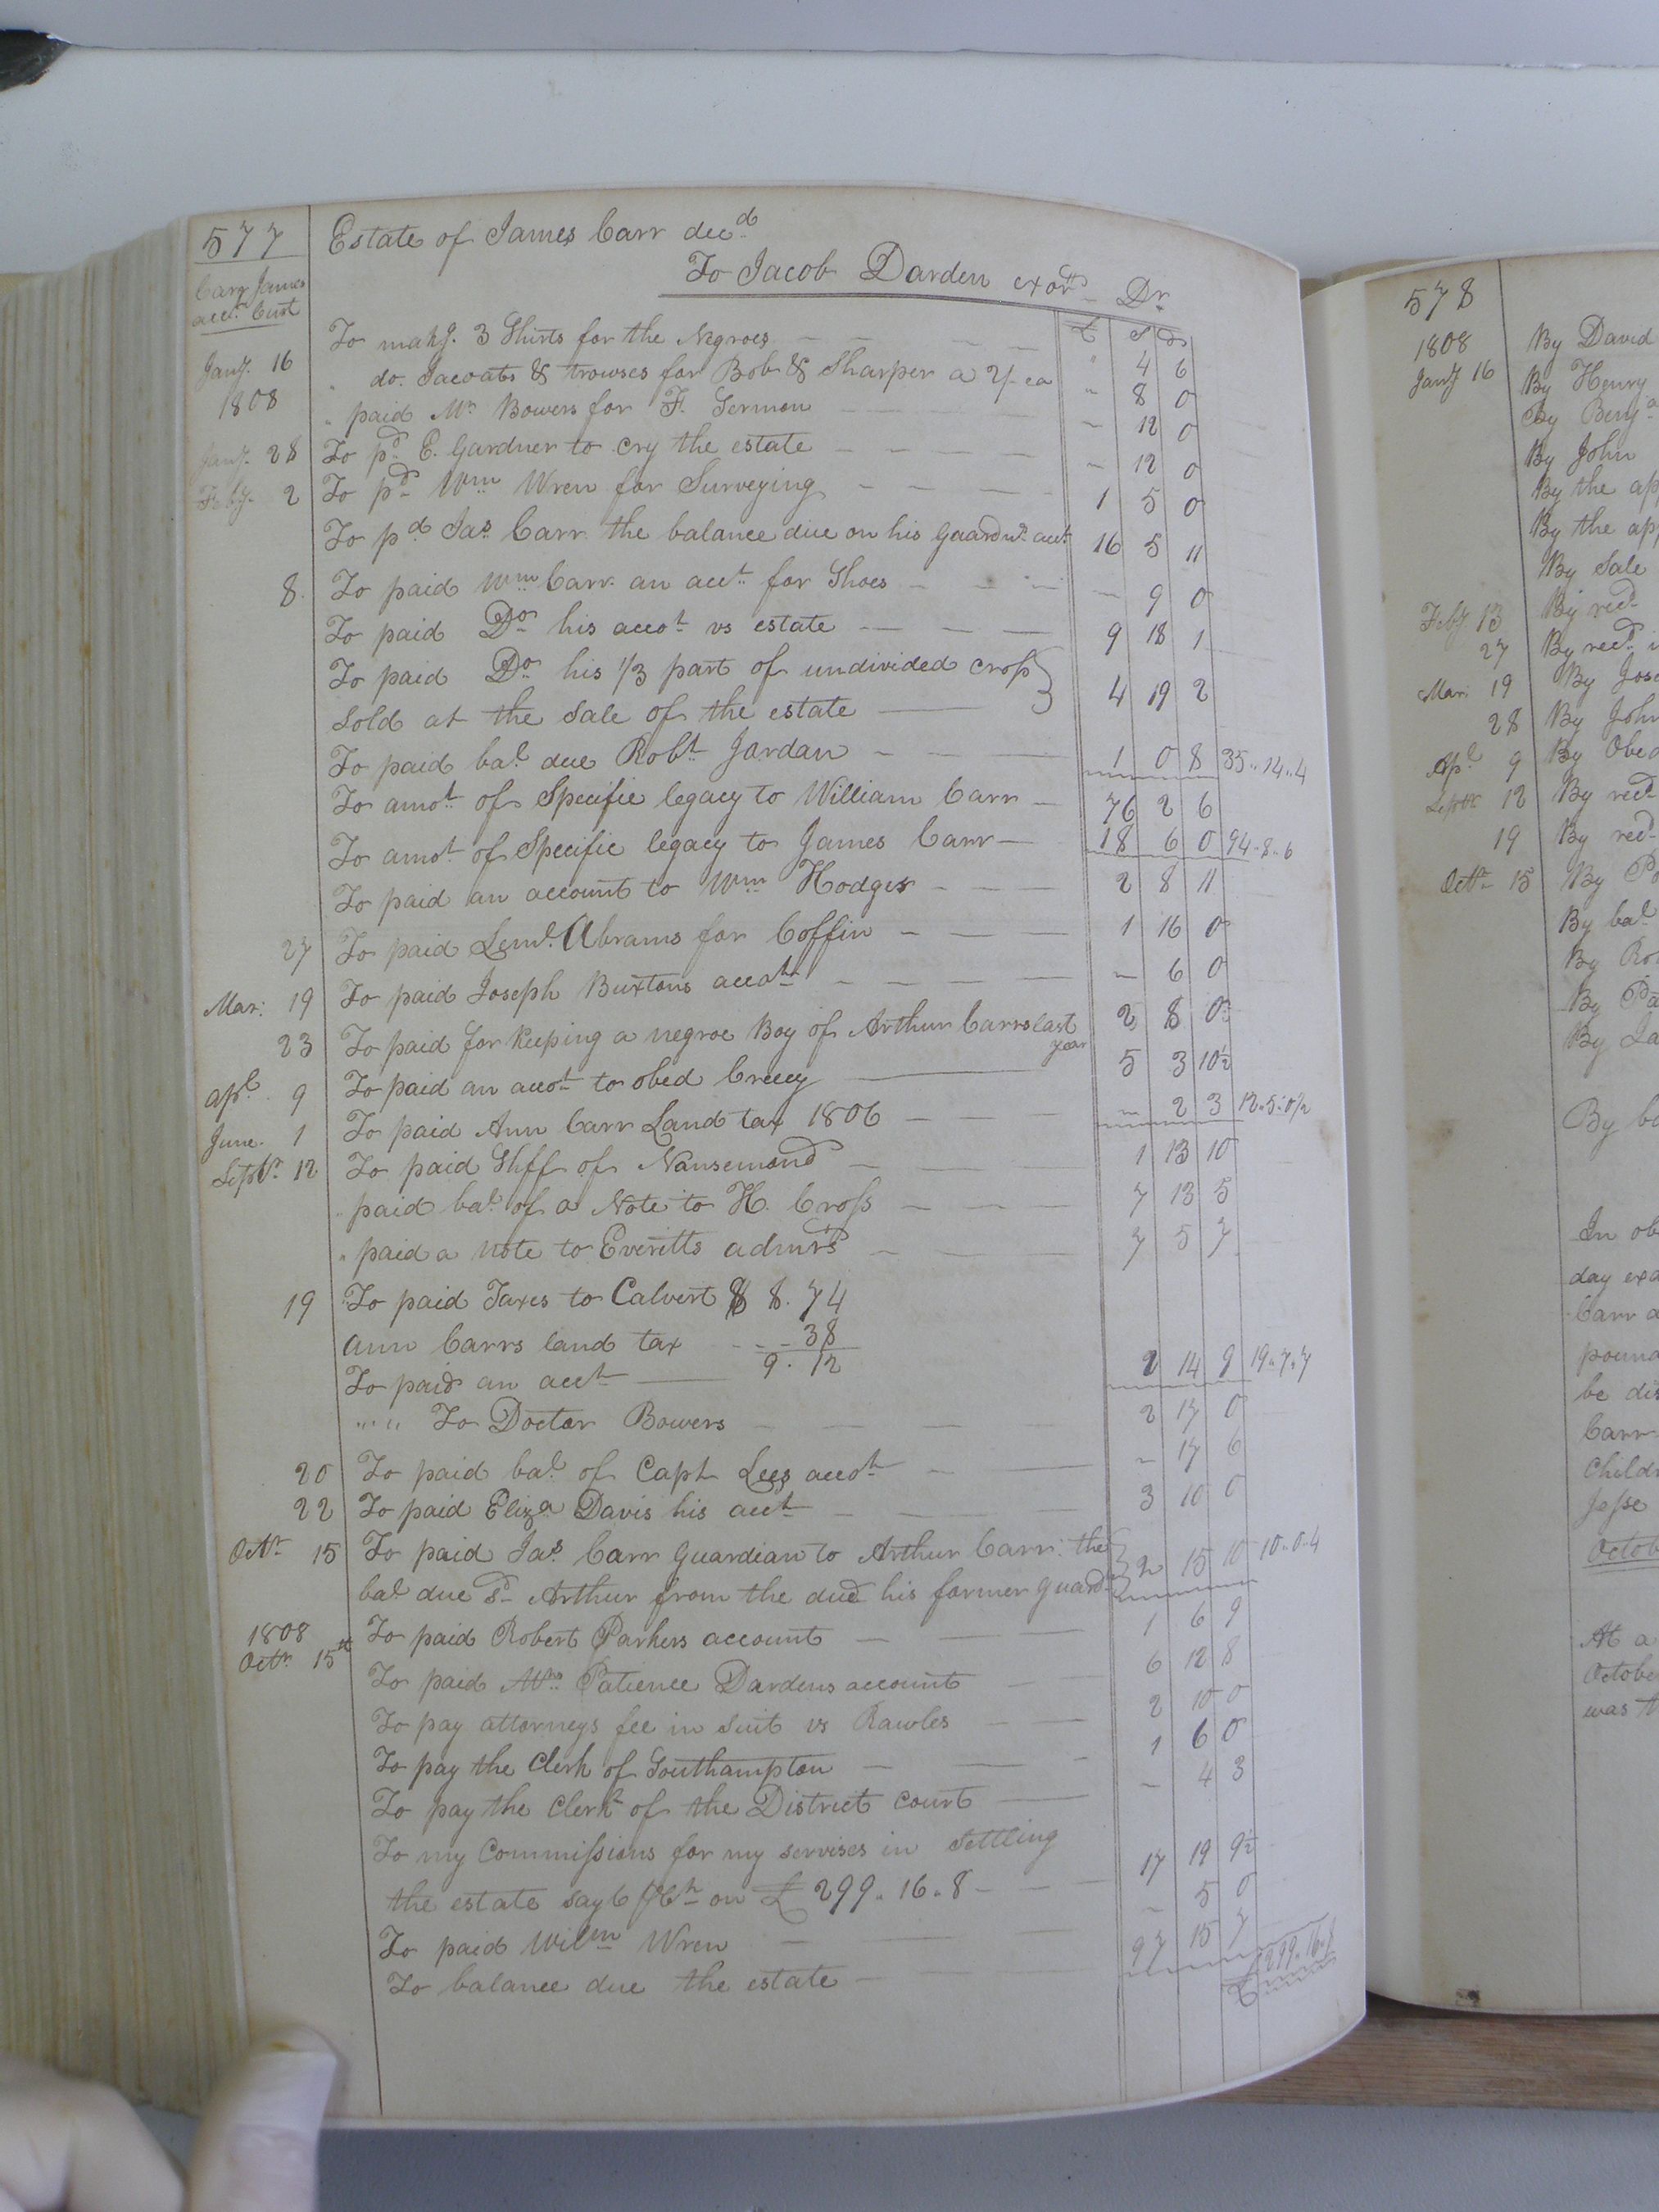 577
Estate of James Carr decd
To Jacob Darden exor Dr
Carr James
acct. Curt
£ S D
Jany. 16 To makg. 3 Shirts for the Negroes — — — " 4 6
1808 " do. Jacoats & trowses for Bob & Sharper a 2/ ea " 8 0
" paid Mr Bowers for F. Sermon — — — 12 0
Jany. 28 To pd E. Gardner to cry the estate — — — 12 0
Feby. 2 To pd Wm Wren for Surveying — — — 1 5 0
To pd Jas Carr the balance due on his guardn. acct 16 5 11
8. To paid Wm Carr an acct for Shoes — — — 9 0
To paid Do his accot vs estate — — — 9 18 1
To paid Do his 1/3 part of undivided crop }
Sold at the Sale of the estate — } 4 19 2
To paid bal due Robt Jordan — — 1 0 8 35..14..4
To amot of Specific legacy to William Carr — 76 2 6
To amot of Specific legacy to James Carr — 18 6 0 94..8..6
To paid an account to Wm Hodges — — — 2 8 11
27 To paid Leml. Abrams for Coffin — — — 1 16 0
Mar: 19 To paid Joseph Buxtons accot — — — 6 0
23 To paid for Keeping a negroe Boy of Arthur Carrs last year 2 8 0
Apl. 9 To paid an accot to obed Creecy — 5 3 10½
June. 1 To paid Ann Carr Land tax 1806 — — — 2 3 12..5..0½
Septr. 12 To paid Shff of Nansemond — — 1 13 10
" paid bal of a Note to H. Cross — — — 7 13 5
" paid a note to Everitts admrs — — 7 5 7
19 To paid Taxes to Calvert $ 8. 74
Ann Carrs land tax - - - 38
To paid an acct — 9. 12 2 14 9 19..7..7
" " " To Doctor Bowers — — — 2 17 0
20 To paid bal of Capt Lees accot — — 17 6
22 To paid Eliza Davis his acct — — 3 10 0
Octr 15 To paid Jas Carr Guardian to Arthur Carr the }
bal due sd Arthur from the decd his former guardn } 2 15 10 10..0..4
1808
Octr. 15th To paid Robert Parkers account — — 1 6 9
To paid Mrs Patience Dardens account — 6 12 8
To pay attorneys fee in Suit vs Rawles — — 2 10 0
To pay the Clerk of Southampton — — 1 6 0
To pay the Clerk of the District Court — — 4 3
To my Commissions for my servises in Settling
the estate say 6 on £ 299..16..8 — — — 17 19 9½
To paid Wilm Wren — — — 5 0
To balance due the estate — — 97 15 7
£ 299..16..8
578
1808 By David
Jany 16 By Henry
By Benja
By John
By the ap
By the app
By Sale
Feby 13 By recd
27 By recd
Mar: 19 By Jos
28 By John
Apl 9 By Obed
Septr 12 By recd
19 By recd
Octr 15 By
By bal
By
By
By
By
In ob
day
Carr
pound
be dis
Carr
Child
Jesse
Octob
At a
Octobe
was